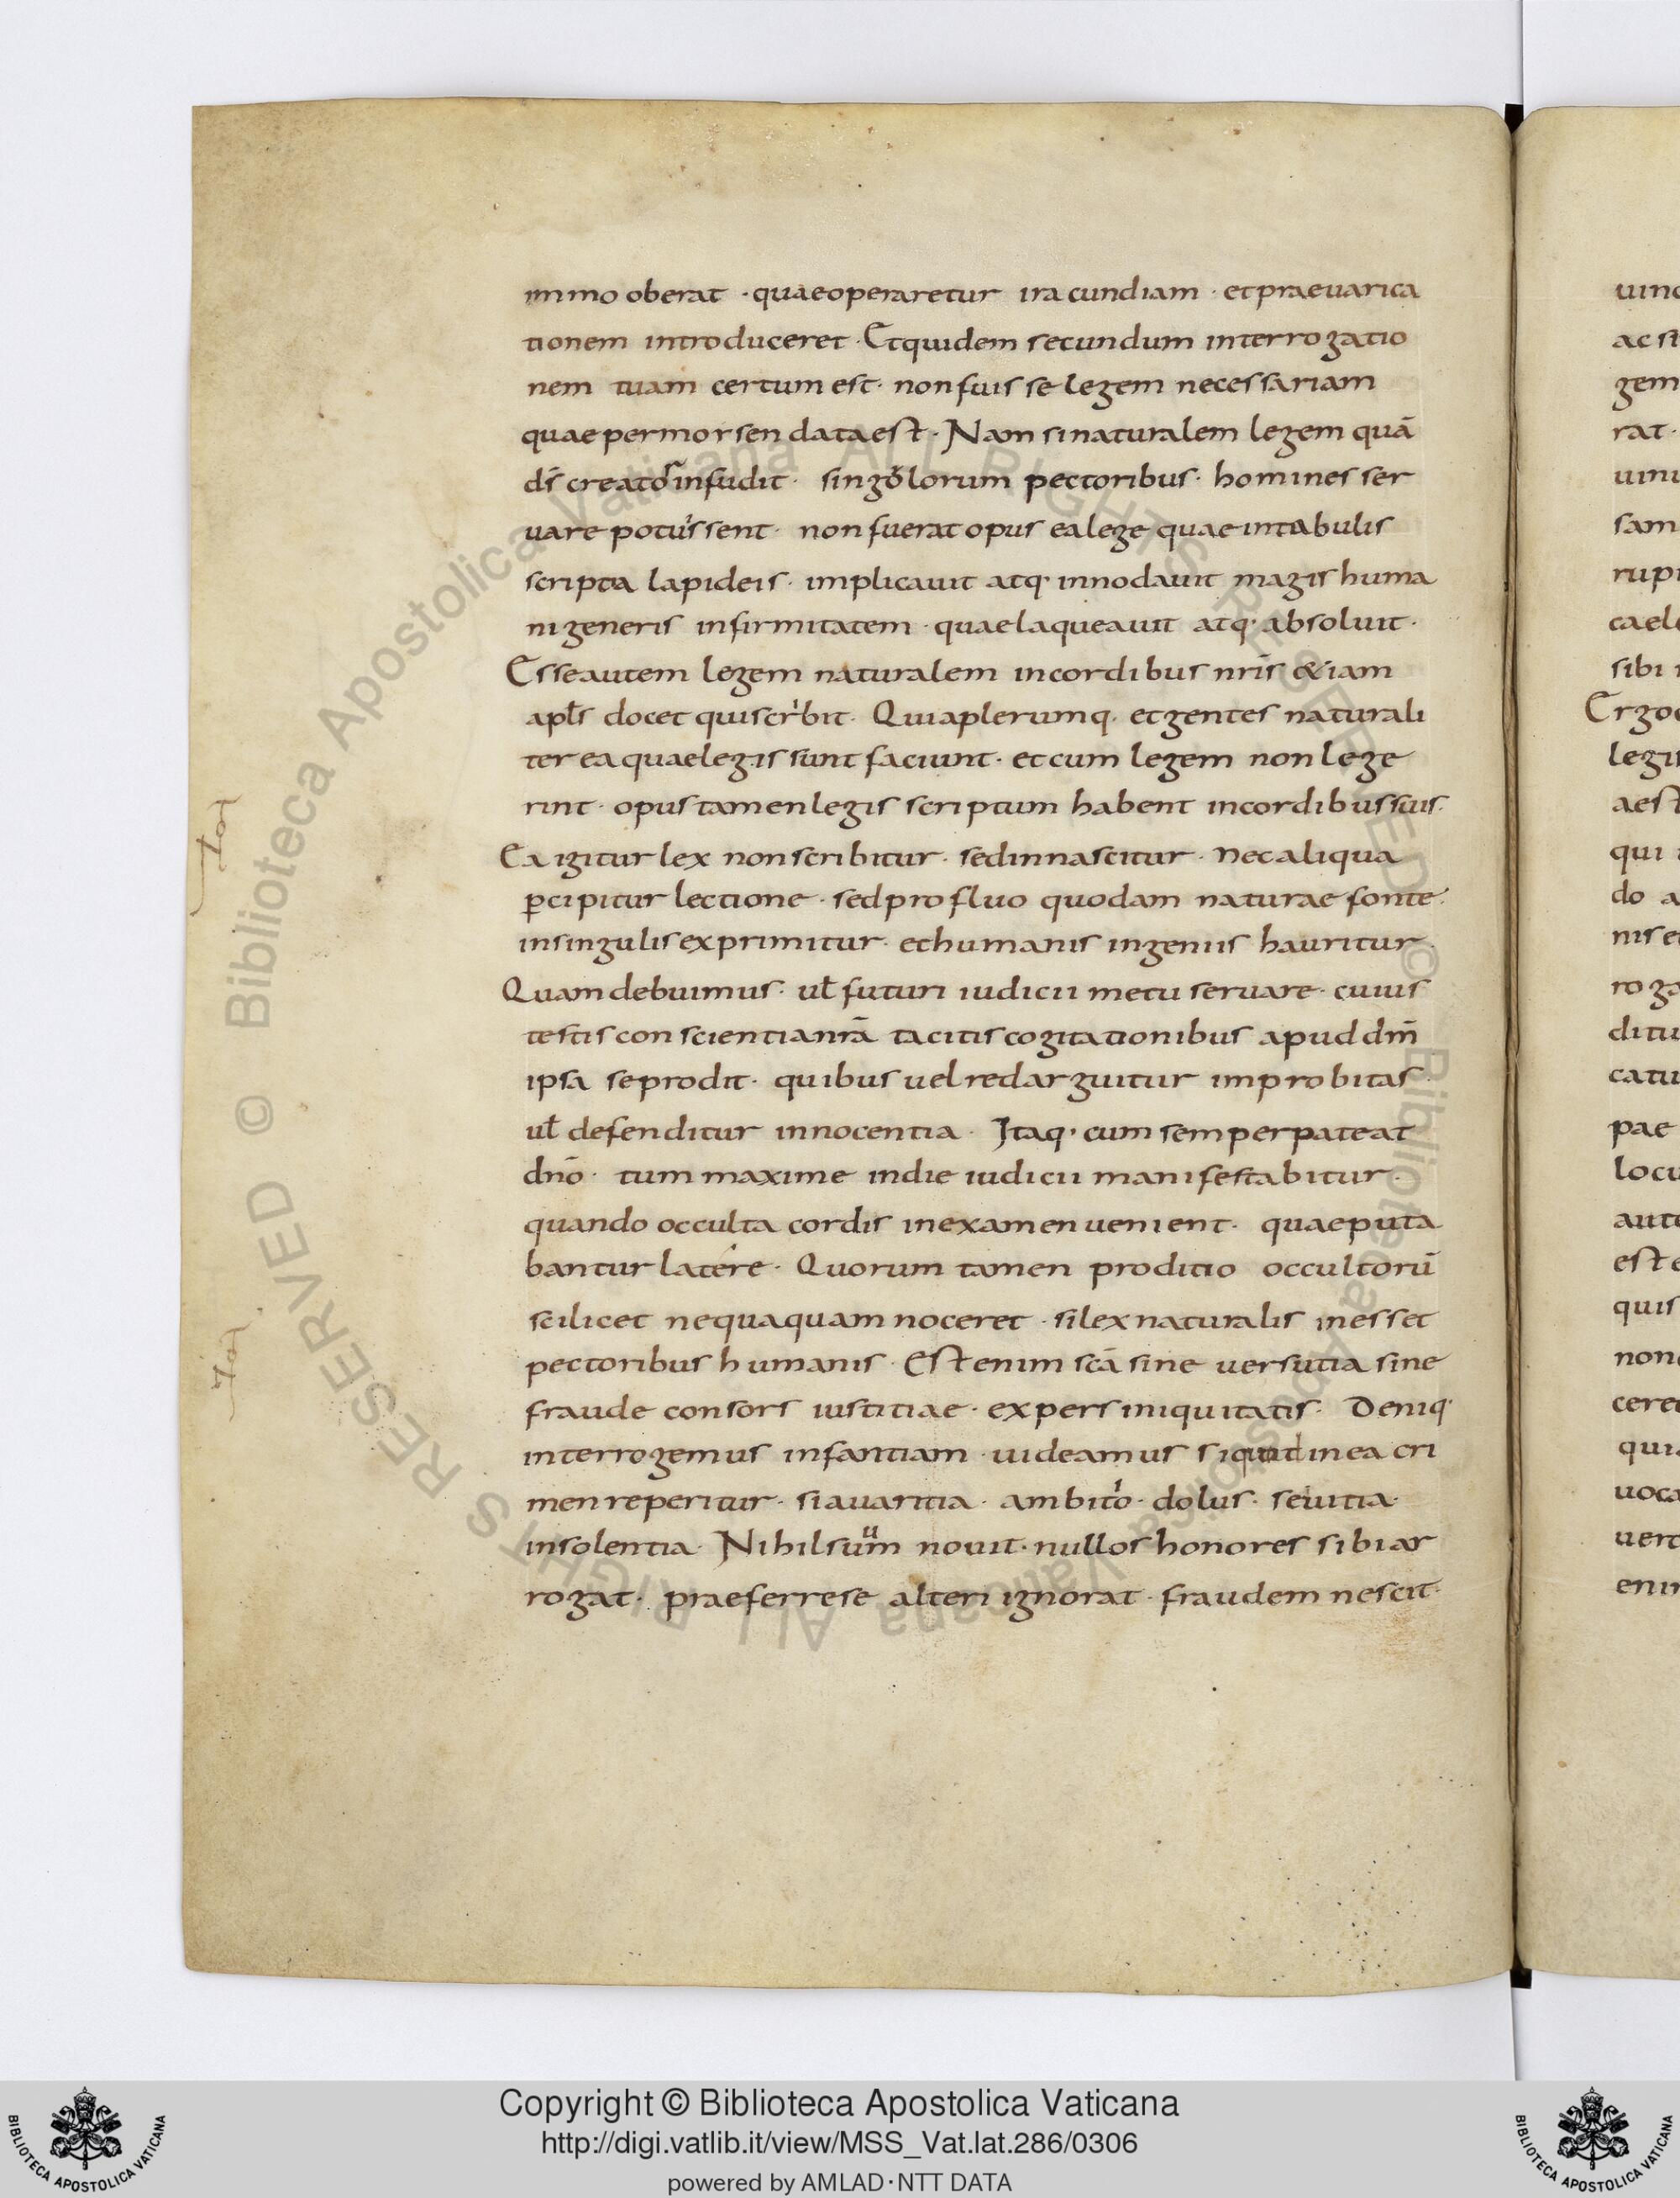 immo oberat · quae operaretur iracundiam · et praeuarica
tionem introduceret · Et quidem secundum interrogatio
nem tuam certum est · non fuisse legem necessariam
quae per morsen data est · Nam si naturalem legem quā
ds̄ creator infudit · singolorum pectoribus · homines ser
uare potuissent · non fuerat opus ea lege quae in tabulis
scripta lapideis · implicauit atq· innodauit magis huma
ni generis infirmitatem · quae laqueauit atq· absoluit ·
Esse autem legem naturalem in cordibus nr̄is &iam
apłs docet qui scribit · Quia plerumq· et gentes naturali
ter ea quae legis sunt faciunt · et cum legem non lege
rint · opus tamen legis scriptum habent in cordibus suis ·
Ea igitur lex non scribitur · sed innascitur · Nec aliqua
ꝑcipitur lectione · sed profluo quodam naturae fonte ·
in singulis exprimitur · et humanis ingeniis hauritur ·
Quam debuimus · uł futuri iudicii metu seruare · cuius
testis conscientia nr̄ā tacitis cogitationibus apud dm̄
ipsa se prodit · quibus uel redarguitur improbitas ·
uł defenditur innocentia · Itaq· cum semper pateat
dnō · tum maxime in die iudicii manifestabitur ·
quando occulta cordis in examen uenient · quae puta
bantur latere · Quorum tamen proditio occultorū
scilicet nequaquam noceret · si lex naturalis inesset
pectoribus humanis · Est enim scā sine uersutia sine
fraude consors iustitiae · expers iniquitatis · Deniq·
interrogemus infantiam · uideamus si quid in ea cri
men reperitur · si auaritia · ambitio · dolus · seuitia ·
insolentia · Nihil suum nouit · nullos honores sibi ar
rogat · praeferre se alteri ignorat · fraudem nescit ·
Copyright © Biblioteca Apostolica Vaticana
http://digi.vatlib.it/view/MSS_Vat.lat.286/0306
powered by AMLAD·NTT DATA
BIBLIOTECA APOSTOLICA VATICANA
BIBLIOTECA APOSTOLICA VATICANA
© Biblioteca Apostolica Vaticana ALL RIGHTS RESERVED © Biblioteca Apostolica Vaticana ALL RIGHTS RESERVED